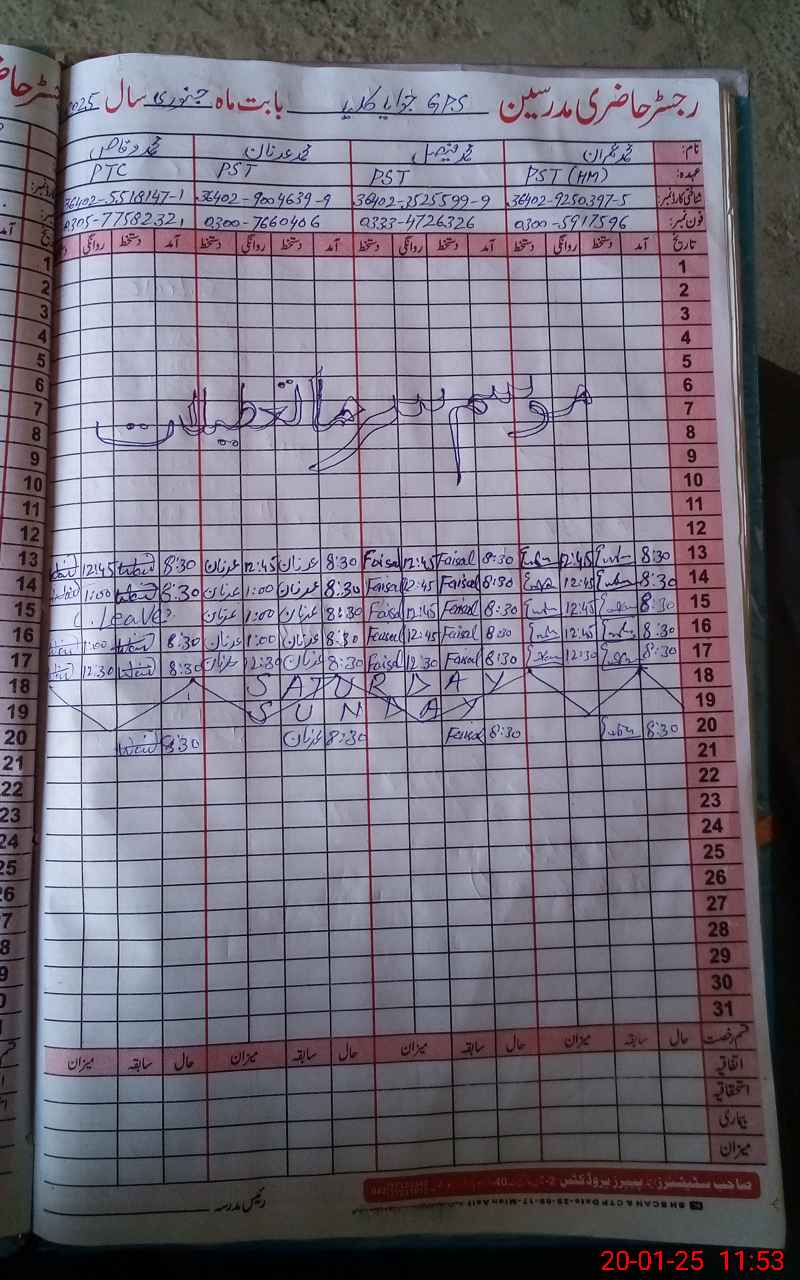 رجسٹر حاضری مدرسین GPS بابت ماہ جنوری سال 2025
نام: محمد عمران محمد فیصل محمد عدنان محمد وقاص
عہدہ: PST (HM) PST PST PTC
شناختی کارڈ نمبر: 36402-9250397-5 36402-2525599-9 36402-9004639-9 36402-5518147-1
فون نمبر: 0300-5917596 0333-4726326 0300-7660406 0305-7758232
تاریخ آمد دستخط روانگی دستخط آمد دستخط روانگی دستخط آمد دستخط روانگی دستخط آمد دستخط روانگی
1
2
3
4
5
6
7
موسم سرما تعطیلات
8
9
10
11
12
13 8:30 12:45 8:30 Faisal 12:45 Faisal 8:30 عدنان 12:45 عدنان 8:30 12:45
14 8:30 12:45 8:30 Faisal 12:45 Faisal 8:30 عدنان 1:00 عدنان 8:30 1:00
15 8:30 12:45 8:30 Faisal 12:45 Faisal 8:30 عدنان 1:00 عدنان Leave
16 8:30 12:45 8:30 Faisal 12:45 Faisal 8:30 عدنان 1:00 عدنان 8:30 1:00
17 8:30 12:30 8:30 Faisal 12:30 Faisal 8:30 عدنان 12:30 عدنان 8:30 12:30
18 SATURDAY
19 SUNDAY
20 8:30 8:30 Faisal 8:30 عدنان 8:30
21
22
23
24
25
26
27
28
29
30
31
قسم رخصت حال سابقہ میزان حال سابقہ میزان حال سابقہ میزان حال سابقہ میزان
اتفاقیہ
استحقاقیہ
بیماری
میزان
صاحب سٹیشنرز اینڈ پیپرز پروڈکٹس
رئیس مدرسہ
20-01-25 11:53